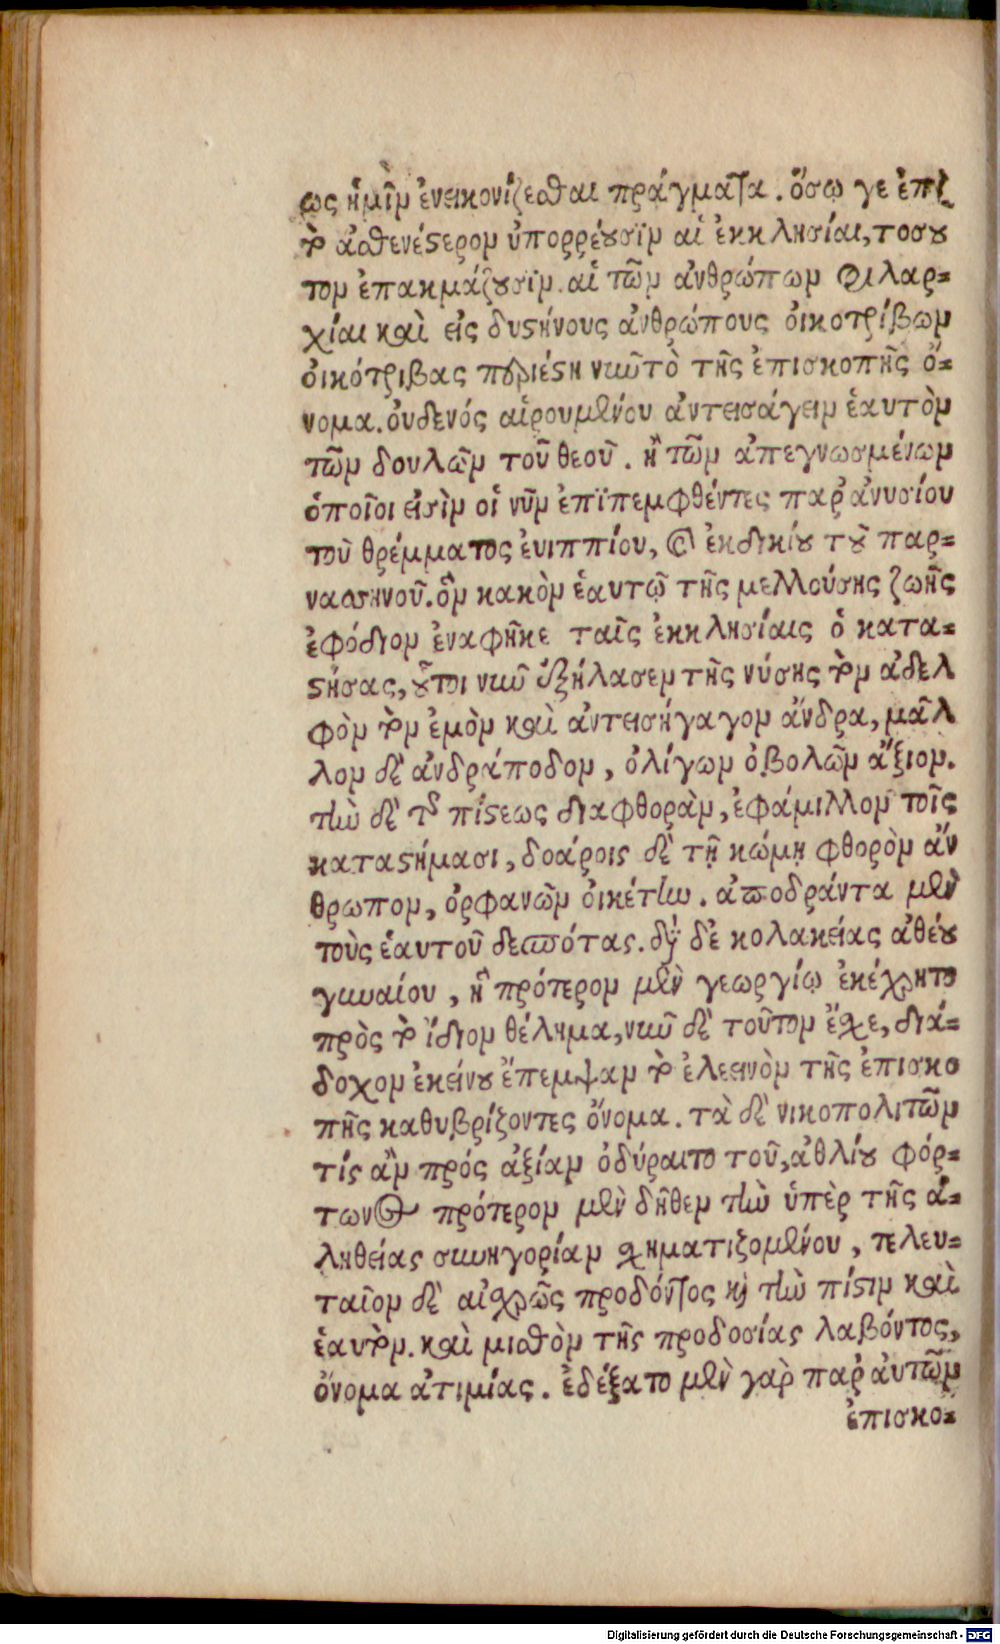 ως ἡμῖν ἐνεικονίζεσθαι πράγματα. ὅσῳ γε ἐπὶ
τὸ ἀσθενέστερον ὑπορρέουσϊν αἱ ἐκκλησίαι, τοσου
τον ἐπακμάζουσϊν. αἱ τῶν ἀνθρώπων φιλαρ=
χίαι καὶ εἰς δυστήνους ἀνθρώπους οἰκοτρίβων
οἰκότριβας περιέστη νῦν τὸ τῆς ἐπισκοπῆς ὄ=
νομα. οὐδενός αἱρουμένου ἀντεισάγειν ἑαυτὸν
τῶν δουλῶν τοῦ θεοῦ. ἢ τῶν ἀπεγνωσμένων
ὁποῖοι εἰσὶν οἱ νῦν ἐπϊπεμφθέντες παρ' ἀνυσίου
τοῦ θρέμματος ἐνιππίου, καὶ ἐκδικίου τοῦ παρ=
νασσηνοῦ. ὃν κακὸν ἑαυτῷ τῆς μελλούσης ζωῆς
ἐφόδιον ἐναφῆκε ταῖς ἐκκλησίαις ὁ κατα=
στήσας, οὗτοι νῦν ἐξήλασεν τῆς νύσης τὸν ἀδελ
φὸν τὸν ἐμὸν καὶ ἀντεισήγαγον ἄνδρα, μᾶλ
λον δὲ ἀνδράποδον, ὀλίγων ὀβολῶν ἄξιον.
τὴν δὲ τῆς πίστεως διαφθορὰν, ἐφάμιλλον τοῖς
καταστήμασι, δοάροις δὲ τῇ κώμῃ φθορὸν ἄν
θρωπον, ὀρφανῶν οἰκέτην. ἀποδράντα μὲν
τοὺς ἑαυτοῦ δεσπότας. δι' δὲ κολακείας ἀθέου
γυναίου, ἣ πρότερον μὲν γεωργίῳ ἐκέχρητο
πρὸς τὸ ἴδιον θέλημα, νῦν δὲ τοῦτον ἔσχε, διά=
δοχον ἐκείνου ἔπεμψαν τὸ ἐλεεινὸν τῆς ἐπισκο
πῆς καθυβρίζοντες ὄνομα. τὰ δὲ νικοπολιτῶν
τίς ἂν πρός ἀξίαν ὀδύραιτο τοῦ, ἀθλίου φόρ=
τωνος πρότερον μὲν δῆθεν τὴν ὑπὲρ τῆς ἀ=
ληθείας συνηγορίαν σχηματιζομένου, τελευ=
ταῖον δὲ αἰσχρῶς προδόντος καὶ τὴν πίστιν καὶ
ἑαυτὸν. καὶ μισθὸν τῆς προδοσίας λαβόντος,
ὄνομα ἀτιμίας. ἐδέξατο μὲν γὰρ παρ' αὐτῶν
ἐπισκο=
Digitalisierung gefördert durch die Deutsche Forschungsgemeinschaft - DFG